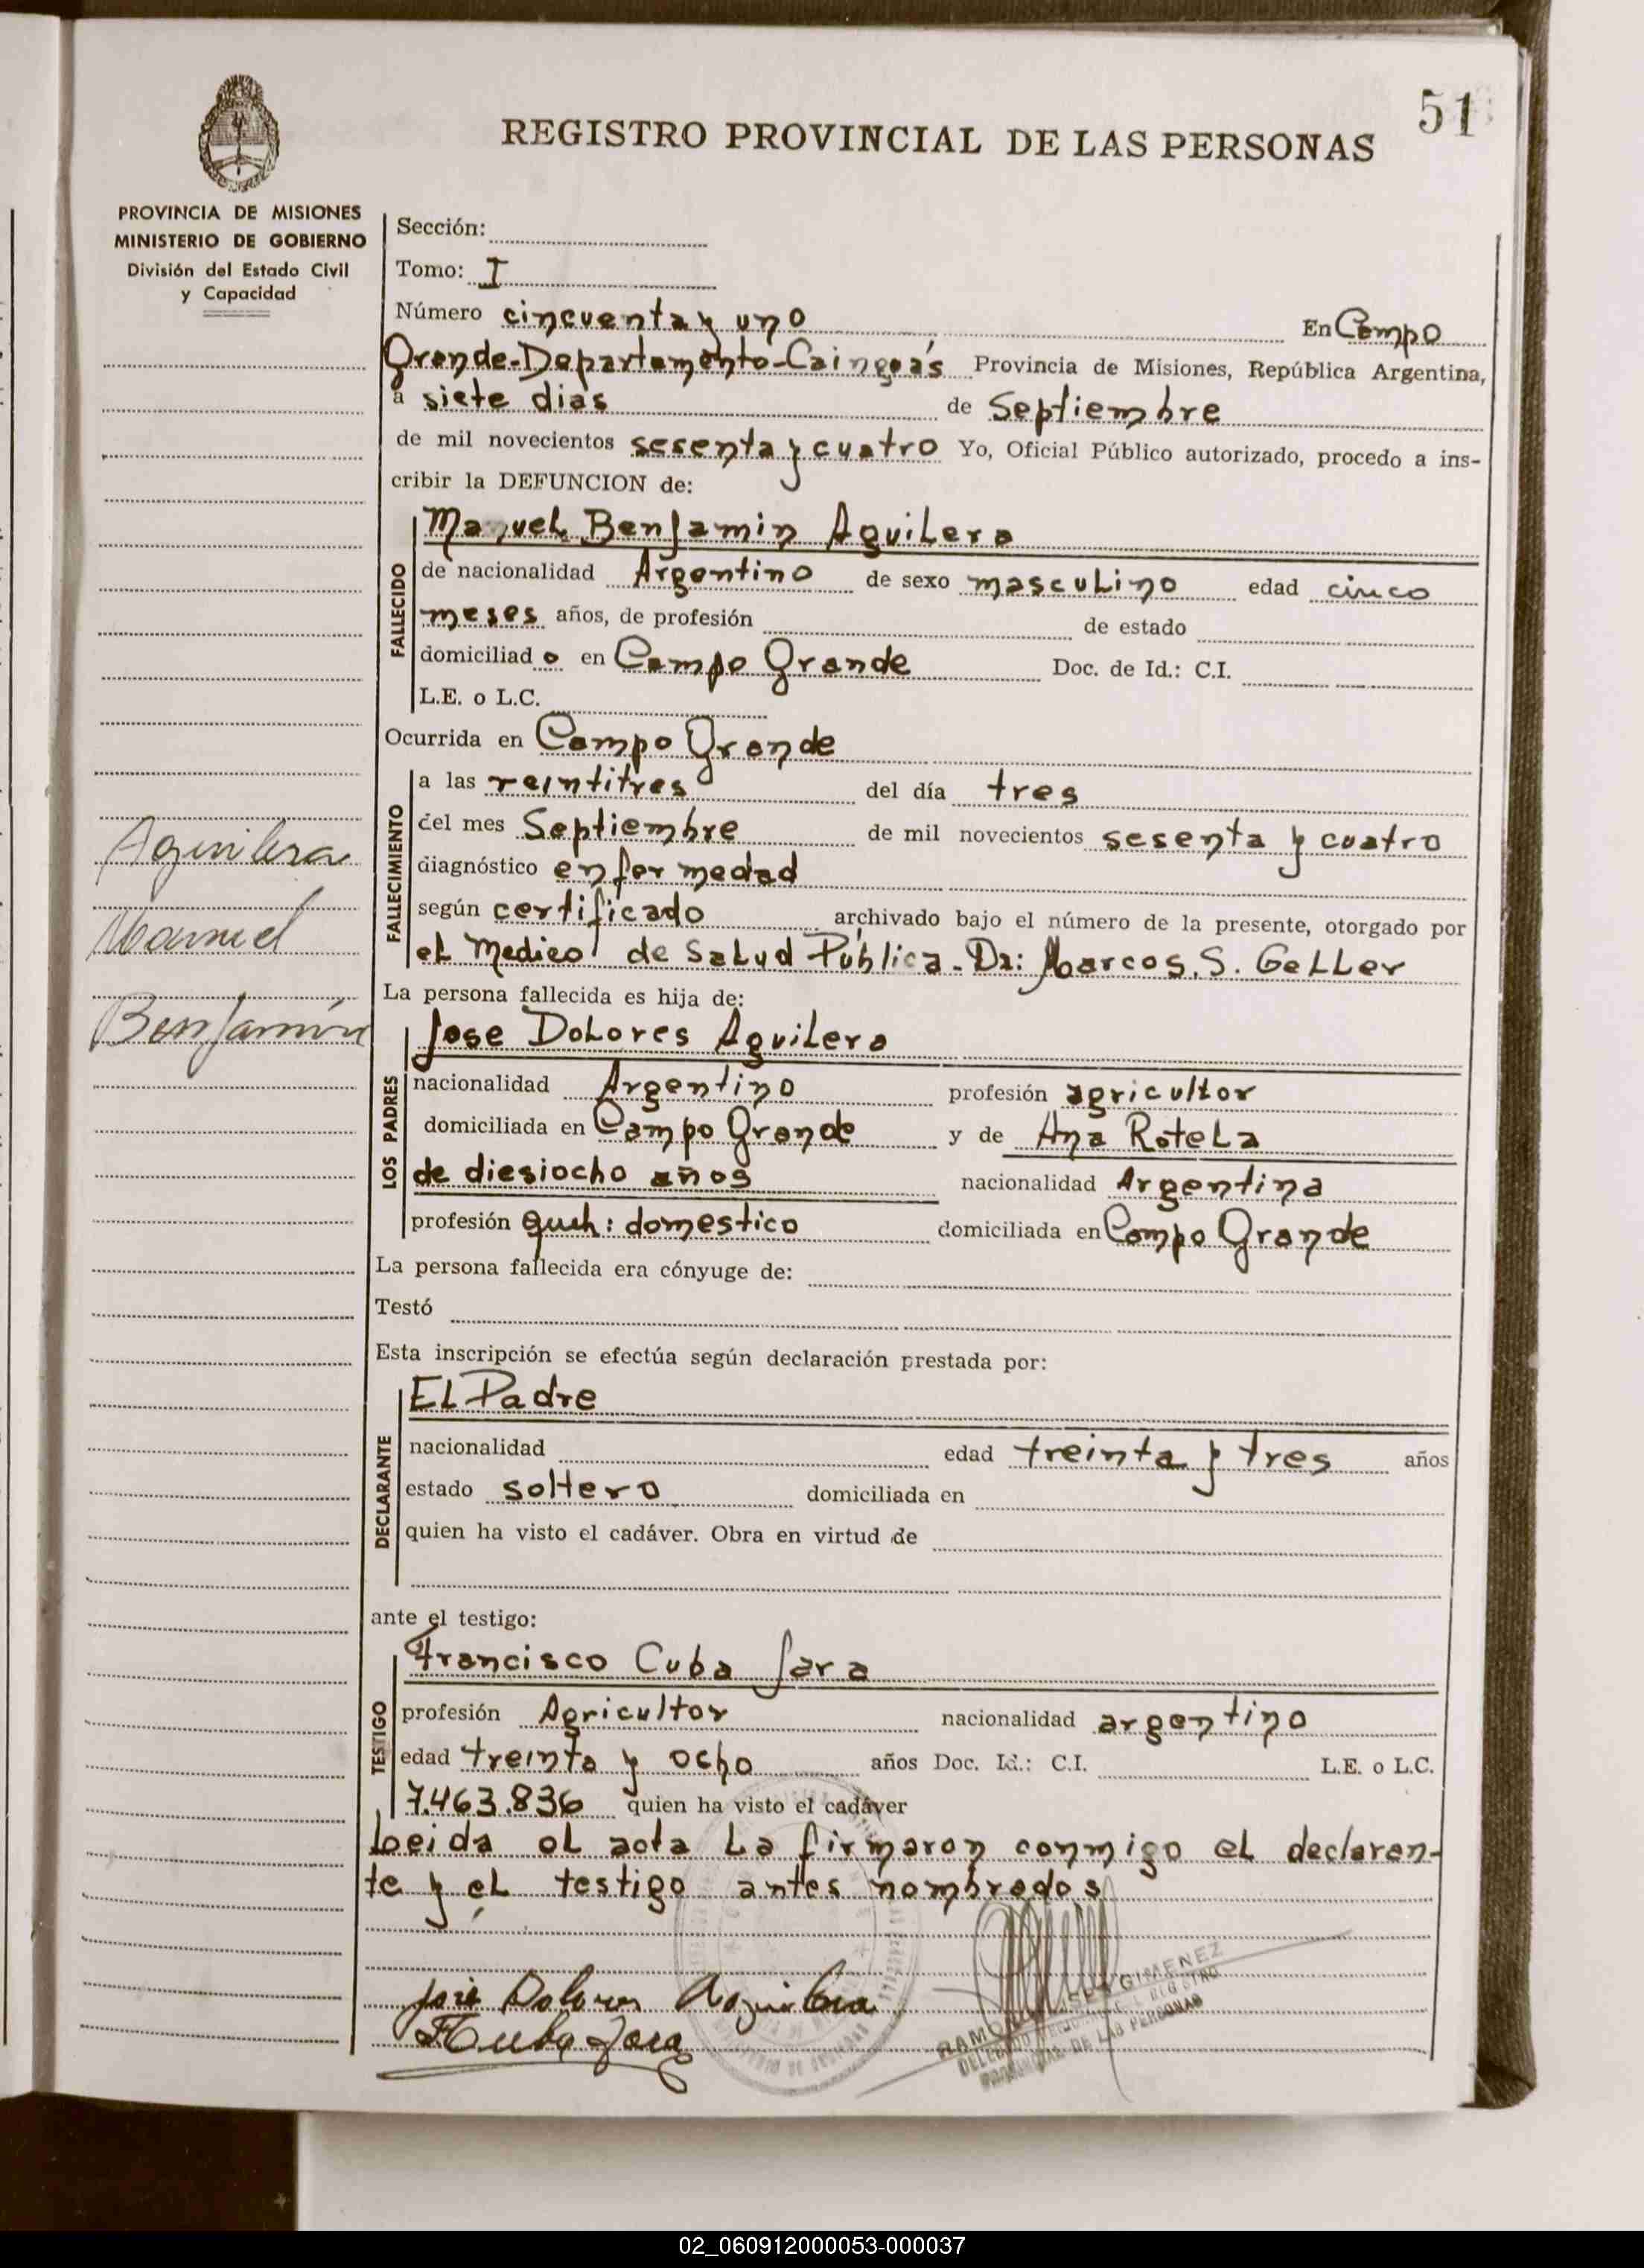 51
REGISTRO PROVINCIAL DE LAS PERSONAS
PROVINCIA DE MISIONES
MINISTERIO DE GOBIERNO
División del Estado Civil
y Capacidad
Sección:
Tomo: I
Número cincuenta y uno En Campo
Grande-Departamento-Cainguás Provincia de Misiones, República Argentina,
a siete dias de Septiembre
de mil novecientos sesenta y cuatro Yo, Oficial Público autorizado, procedo a ins-
cribir la DEFUNCION de:
FALLECIDO
Manuel Benjamin Aguilera
de nacionalidad Argentino de sexo masculino edad cinco
meses años, de profesión de estado
domiciliado en Campo Grande Doc. de Id.: C.I.
L.E. o L.C.
Ocurrida en Campo Grande
FALLECIMIENTO
a las veintitres del día tres
del mes Septiembre de mil novecientos sesenta y cuatro
diagnóstico enfermedad
según certificado archivado bajo el número de la presente, otorgado por
el Medico de Salud Pública. Dr: Marcos. S. Geller
Aguilera
Manuel
Benjamín
La persona fallecida es hija de:
LOS PADRES
Jose Dolores Aguilera
nacionalidad Argentino profesión agricultor
domiciliada en Campo Grande y de Ana Rotela
de diesiocho años nacionalidad Argentina
profesión queh: domestico domiciliada en Campo Grande
La persona fallecida era cónyuge de:
Testó
Esta inscripción se efectúa según declaración prestada por:
DECLARANTE
El Padre
nacionalidad edad treinta y tres años
estado soltero domiciliada en
quien ha visto el cadáver. Obra en virtud de
ante el testigo:
TESTIGO
Francisco Cuba Jara
profesión Agricultor nacionalidad argentino
edad treinta y ocho años Doc. Id.: C.I. L.E. o L.C.
7.463.836 quien ha visto el cadáver
Leida el acta la firmaron conmigo el declaran-
te y el testigo antes nombrados
José Dolores Aguilera
F Cuba Jara
GIMENEZ
DE LAS PERSONAS
02_060912000053-000037